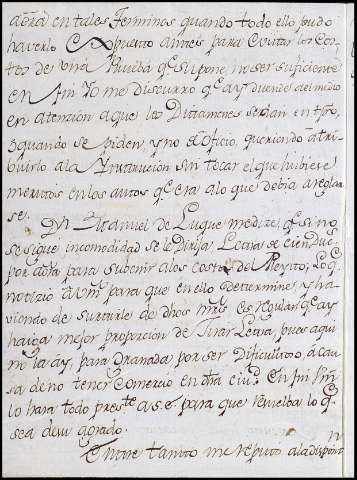 aora en tales terminos quando todo ello pudo
haverlo expuesto antes para evitar los Cos-
tos de una Prueba q.e supone no ser suficiente
en fin Yo me discurro q.e ay duende de medio
en atencion a que los Dictamenes se dan en
quando se piden y no de Oficio, queriendo atri-
buirlo a la Instrucion sin tocar el que hubiere
meritos en los autos q.e era a lo que debia areglar
se.
Dn Manuel de Luque me dize, q.e si no
se sigue incomodidad se le Dirija Letra de cien Duc.
por aora para subenir a los Costos del Pleyto, lo q.
notizio a Vm para que en ello determine, y ha
viendo de surtirle de dhos mrs es regular q.e ay
haiga mejor proporcion de tirar Letra, pues aqui
no la ay, para Granada por ser Dificultoso, a cau
sa de no tener Comercio en dha ciud. en fin Vm
lo hara todo pres.te a S.E. para que resuelba lo q.
sea de su agrado.
Entre tanto me repito a la dispon